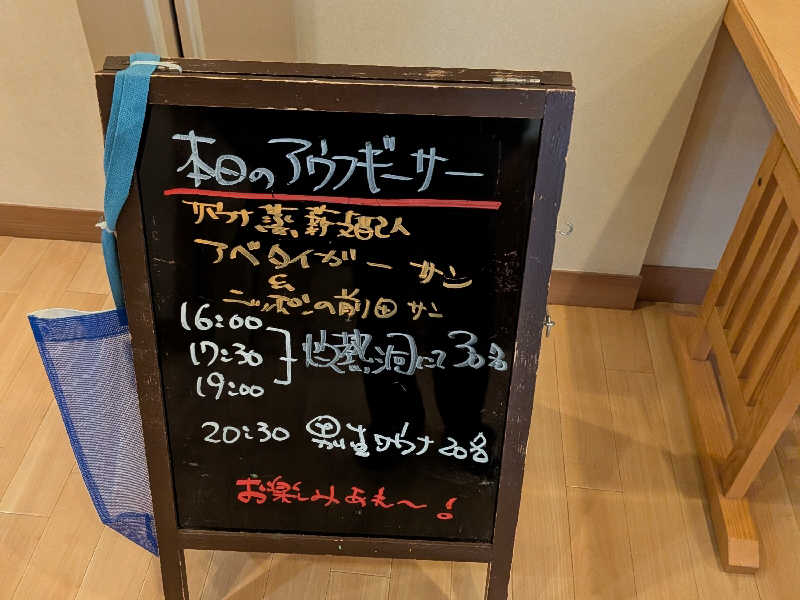 本日のアウフギーサー
サウナ蒸 薪 人
アベタイガー サン
&
ニッポンの前田 サン
16:00
17:30
19:00
熱洞にて 30名
20:30 男性サウナ 20名
お楽しみあれ〜!